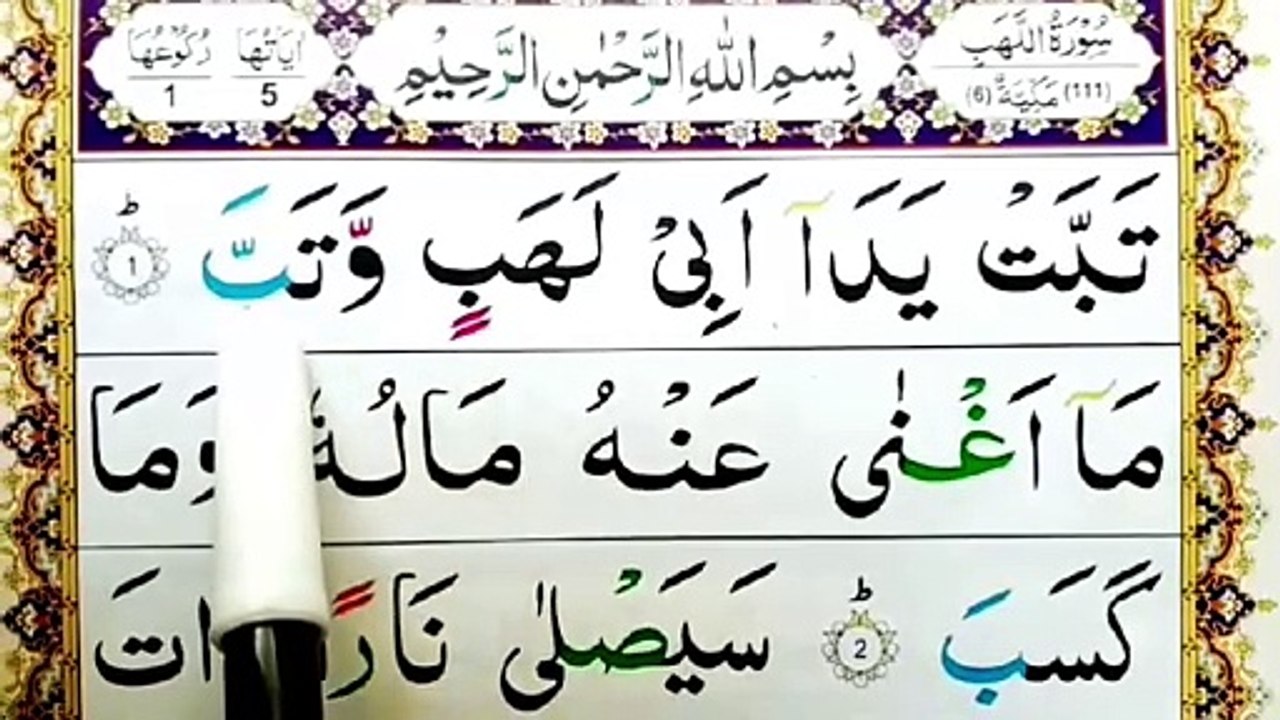 سُوْرَةُ اللَّهَبِ
(111) مَكِّيَّةٌ (6)
بِسْمِ اللّٰهِ الرَّحْمٰنِ الرَّحِيْمِ
اٰيَاتُهَا رُكُوْعُهَا
5 1
تَبَّتْ يَدَآ اَبِىْ لَهَبٍ وَّتَبَّ ؕ 1
مَآ اَغْنٰى عَنْهُ مَالُهٗ وَمَا
كَسَبَ ؕ 2 سَيَصْلٰى نَارًا ذَاتَ